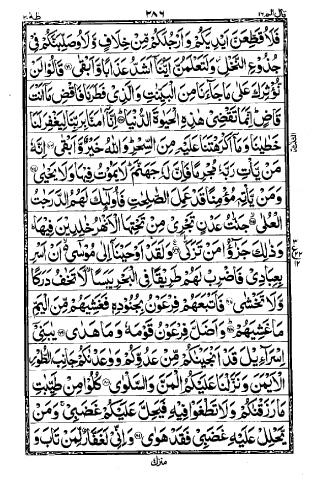 قال الم ١٦ ٢٨٦ طه ٢٠
فَلَاُقَطِّعَنَّ اَيْدِيَكُمْ وَاَرْجُلَكُمْ مِّنْ خِلَافٍ وَّلَاُوصَلِّبَنَّكُمْ فِيْ
جُذُوْعِ النَّخْلِ وَلَتَعْلَمُنَّ اَيُّنَآ اَشَدُّ عَذَابًا وَّاَبْقٰى ۝۷۱ قَالُوْا لَنْ
نُّؤْثِرَكَ عَلٰى مَا جَآءَنَا مِنَ الْبَيِّنٰتِ وَالَّذِيْ فَطَرَنَا فَاقْضِ مَآ اَنْتَ
قَاضٍ ؕ اِنَّمَا تَقْضِيْ هٰذِهِ الْحَيٰوةَ الدُّنْيَا ۝۷۲ اِنَّآ اٰمَنَّا بِرَبِّنَا لِيَغْفِرَ لَنَا
خَطٰيٰنَا وَمَآ اَكْرَهْتَنَا عَلَيْهِ مِنَ السِّحْرِ ؕ وَاللّٰهُ خَيْرٌ وَّاَبْقٰى ۝۷۳ اِنَّهٗ
مَنْ يَّاْتِ رَبَّهٗ مُجْرِمًا فَاِنَّ لَهٗ جَهَنَّمَ ؕ لَا يَمُوْتُ فِيْهَا وَلَا يَحْيٰى ۝۷۴
وَمَنْ يَّاْتِهٖ مُؤْمِنًا قَدْ عَمِلَ الصّٰلِحٰتِ فَاُولٰٓئِكَ لَهُمُ الدَّرَجٰتُ
الْعُلٰى ۝۷۵ جَنّٰتُ عَدْنٍ تَجْرِيْ مِنْ تَحْتِهَا الْاَنْهٰرُ خٰلِدِيْنَ فِيْهَا ؕ
وَذٰلِكَ جَزٰٓؤُا مَنْ تَزَكّٰى ۝۷۶ وَلَقَدْ اَوْحَيْنَآ اِلٰى مُوْسٰٓى ۙ اَنْ اَسْرِ
بِعِبَادِيْ فَاضْرِبْ لَهُمْ طَرِيْقًا فِي الْبَحْرِ يَبَسًا ۙ لَّا تَخٰفُ دَرَكًا
وَّلَا تَخْشٰى ۝۷۷ فَاَتْبَعَهُمْ فِرْعَوْنُ بِجُنُوْدِهٖ فَغَشِيَهُمْ مِّنَ الْيَمِّ
مَا غَشِيَهُمْ ۝۷۸ وَاَضَلَّ فِرْعَوْنُ قَوْمَهٗ وَمَا هَدٰى ۝۷۹ يٰبَنِيْٓ
اِسْرَآءِيْلَ قَدْ اَنْجَيْنٰكُمْ مِّنْ عَدُوِّكُمْ وَوٰعَدْنٰكُمْ جَانِبَ الطُّوْرِ
الْاَيْمَنَ وَنَزَّلْنَا عَلَيْكُمُ الْمَنَّ وَالسَّلْوٰى ۝۸۰ كُلُوْا مِنْ طَيِّبٰتِ
مَا رَزَقْنٰكُمْ وَلَا تَطْغَوْا فِيْهِ فَيَحِلَّ عَلَيْكُمْ غَضَبِيْ ۚ وَمَنْ
يَّحْلِلْ عَلَيْهِ غَضَبِيْ فَقَدْ هَوٰى ۝۸۱ وَاِنِّيْ لَغَفَّارٌ لِّمَنْ تَابَ وَ
منزل